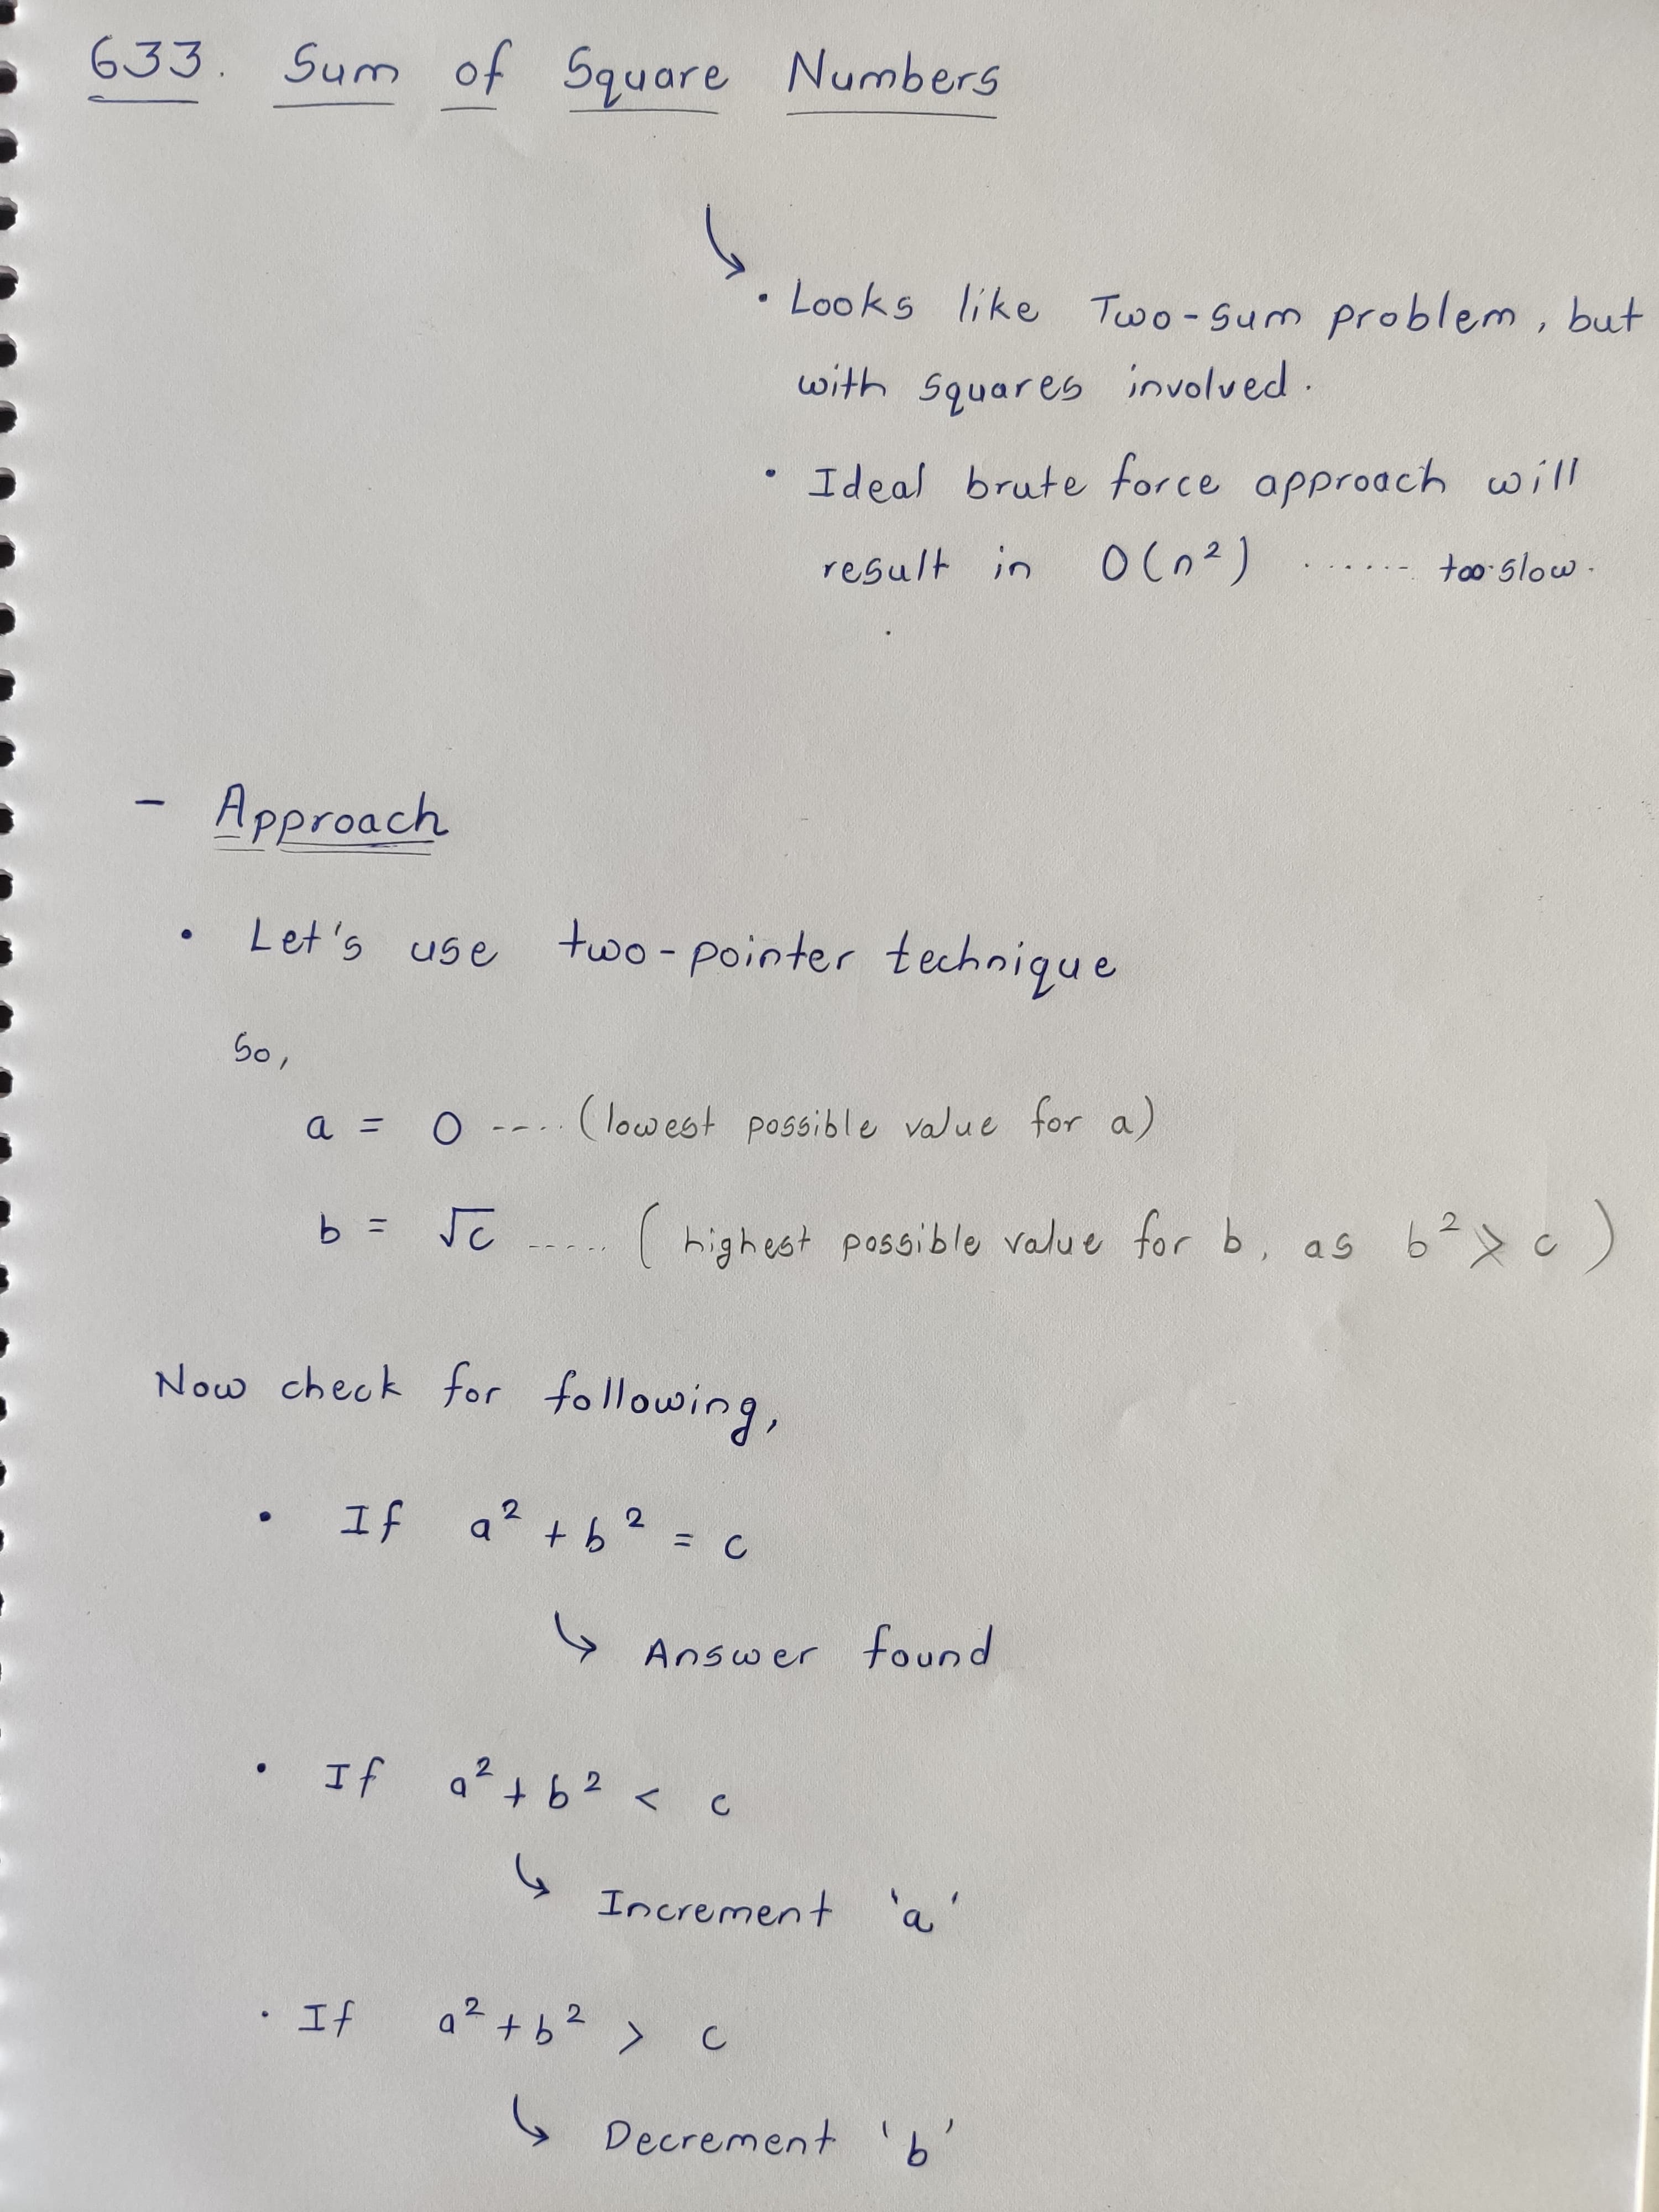 633. Sum of Square Numbers
• Looks like Two-sum problem, but
with squares involved.
• Ideal brute force approach will
result in O(n²) ...... too slow.
- Approach
• Let's use two-pointer technique
So,
a = 0 ---- (lowest possible value for a)
b = √c ..... (highest possible value for b, as b² ≯ c)
Now check for following,
• If a² + b² = c
↳ Answer found
• If a² + b² < c
↳ Increment 'a'
• If a² + b² > c
↳ Decrement 'b'